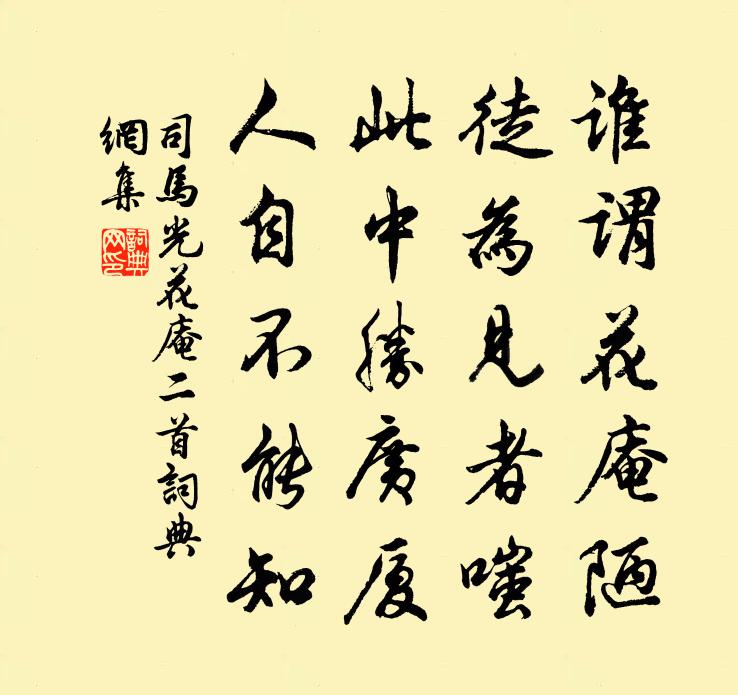 谁谓花庵陋
徒為見者嗤
此中勝廣厦
人自不能知
司馬光花庵二首詞典
網集
詞典
网印